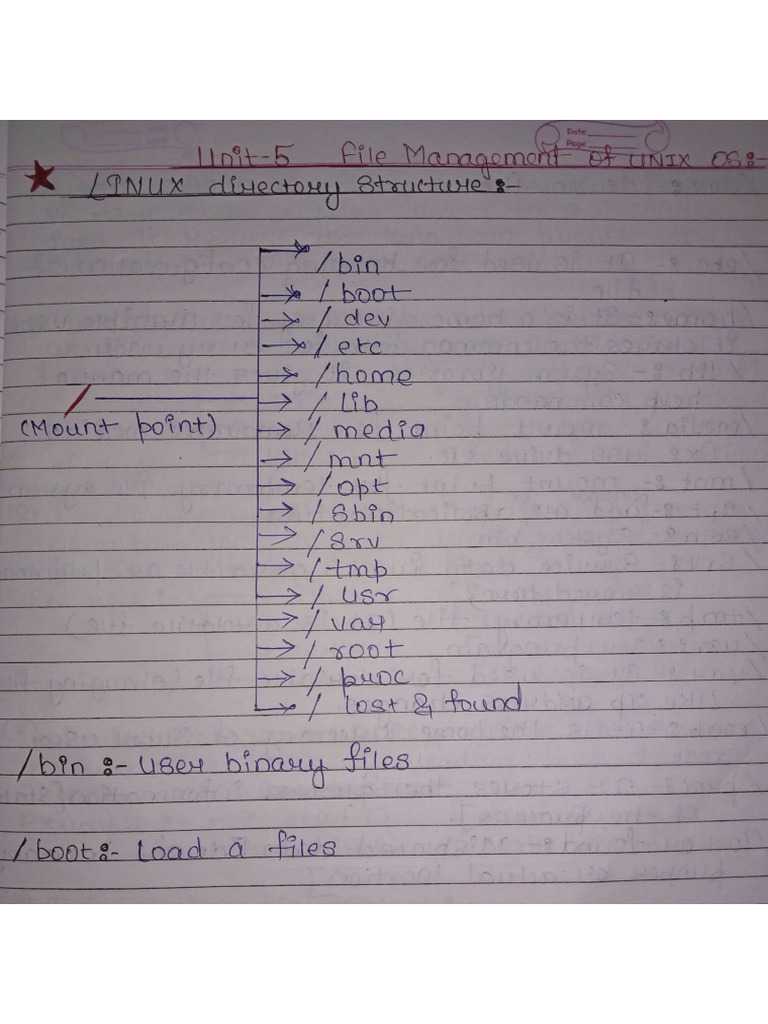 Date
Page
Unit-5 File Management of UNIX OS:-
LINUX directory structure:-
/bin
/boot
/dev
/etc
/home
/
/lib
(Mount point)
/media
/mnt
/opt
/sbin
/srv
/tmp
/usr
/var
/root
/proc
/lost & found
/bin :- user binary files
/boot:- Load a files